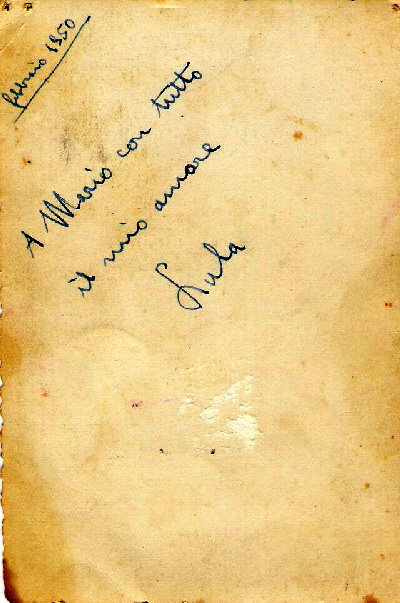 febbraio 1950
A Mario con tutto
il mio amore
Lula